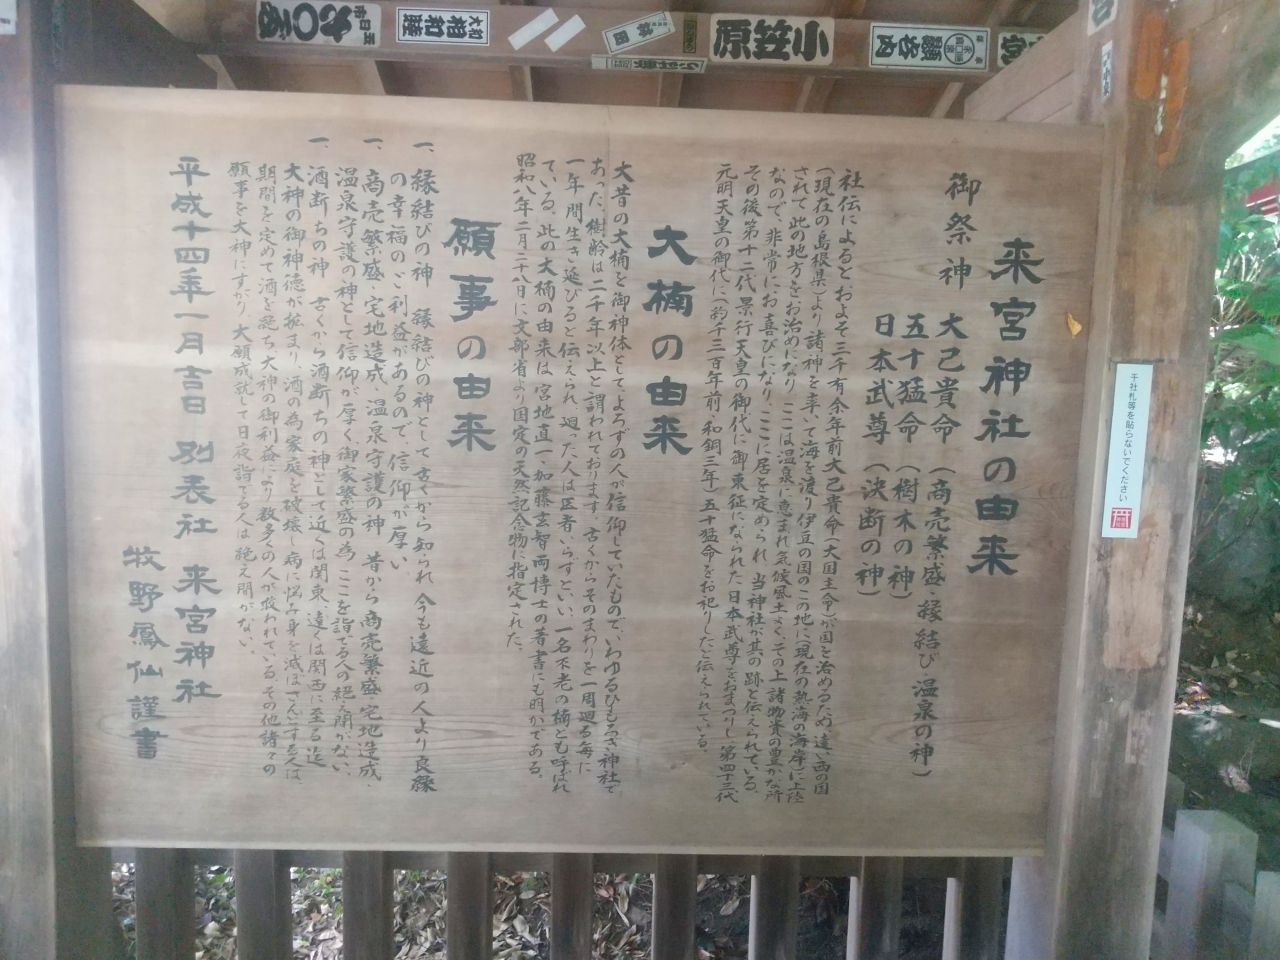 来宮神社の由来
御祭神 大己貴命 (商売繁盛・縁結び・温泉の神)
五十猛命 (樹木の神)
日本武尊 (決断の神)
社伝によるとおよそ三千有余年前大己貴命(大国主命)が国を治めるため、遠い西の国
(現在の島根県)より諸神を率いて海を渡り伊豆の国のこの地に(現在の熱海の海岸)に上陸
されて此の地方をお治めになり、ここは温泉に恵まれ気候風土よく、その上諸物資の豊かな所
なので、非常にお喜びになり、ここに居を定められ、当神社が其の跡と伝えられている。
その後第十二代景行天皇の御代に御東征になられた日本武尊をおまつりし、第四十三代
元明天皇の御代に(約千三百年前和銅三年)五十猛命をお祀りしたと伝えられている。
大楠の由来
大昔の大楠を御神体としてよろずの人が信仰していたもので、いわゆるひもろぎ神社で
あった。樹齢は二千年以上と謂われております。古くからそのまわりを一周廻る毎に
一年間生き延びると伝えられ、廻った人は医者いらずといい、一名不老の楠とも呼ばれ
ている。此の大楠の由来は、宮地直一、加藤玄智両博士の著書にも明かである。
昭和八年二月二十八日に文部省より国定の天然記念物に指定された。
願事の由来
一、縁結びの神 縁結びの神として古から知られ今も遠近の人より良縁
の幸福のご利益があるので、信仰が厚い
一、商売繁盛・宅地造成、温泉守護の神 昔から商売繁盛・宅地造成、
温泉守護の神として信仰が厚く、御家繁盛の為、ここを詣でる人の絶え間がない、
一、酒断ちの神 古くから酒断ちの神として近くは関東、遠くは関西に至る迄
大神の御神徳が拡まり、酒の為家庭を破壊し病に悩み身を滅ぼさんとする人は、
期間を定めて酒を絶ち大神の御利益により数多くの人が救われている。その他諸々の
願事を大神にすがり、大願成就して日夜詣でる人は絶え間がない。
平成十四年一月吉日 別表社 来宮神社
牧野鳳仙謹書
千社札等を貼らないでください
小笠原